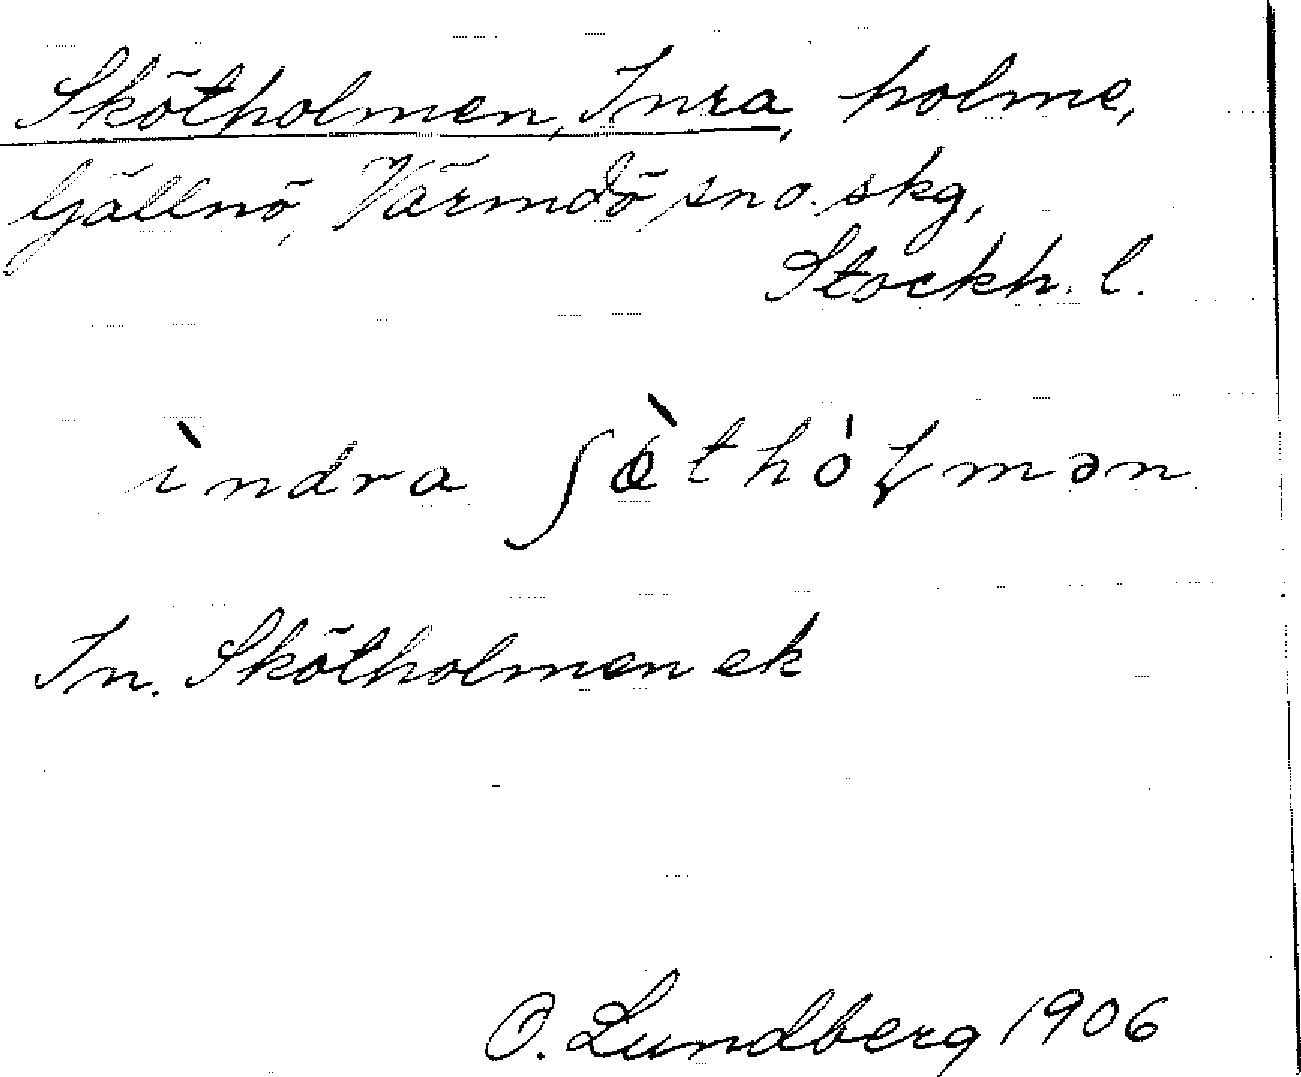 Skötholmen, Inra, holme,
Gällnö, Värmdö sn o. skg,
Stockh. l.
ìndra ʃö̀thóɽmən
In. Skötholmen ek
O. Lundberg 1906